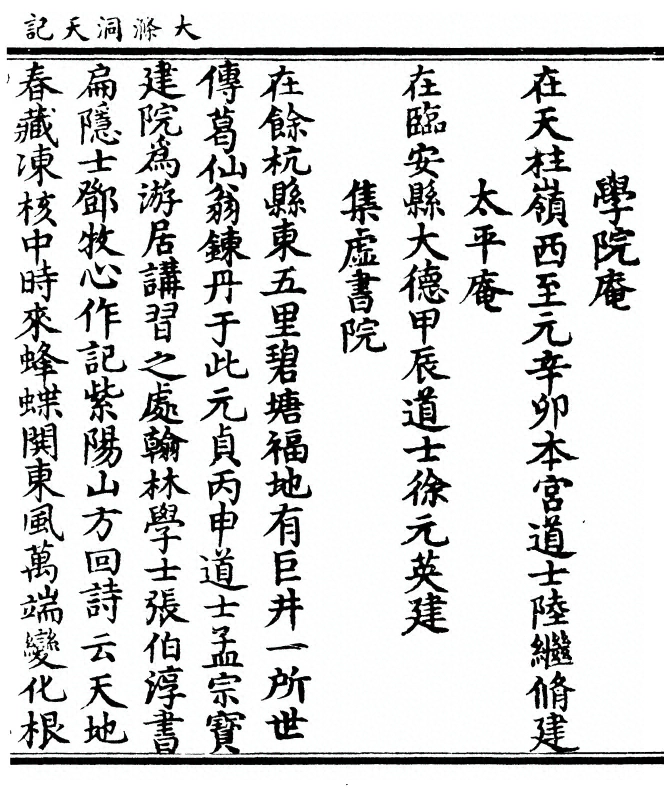 大滌洞天記
學院庵
在天柱嶺西至元辛卯本宮道士陸繼脩建
太平庵
在臨安縣大德甲辰道士徐元英建
集虛書院
在餘杭縣東五里碧塘福地有巨井一所世
傳葛仙翁鍊丹于此元貞丙申道士孟宗寶
建院為游居講習之處翰林學士張伯淳書
扁隱士鄧牧心作記紫陽山方回詩云天地
春藏凍核中時來蜂蝶鬧東風萬端變化根